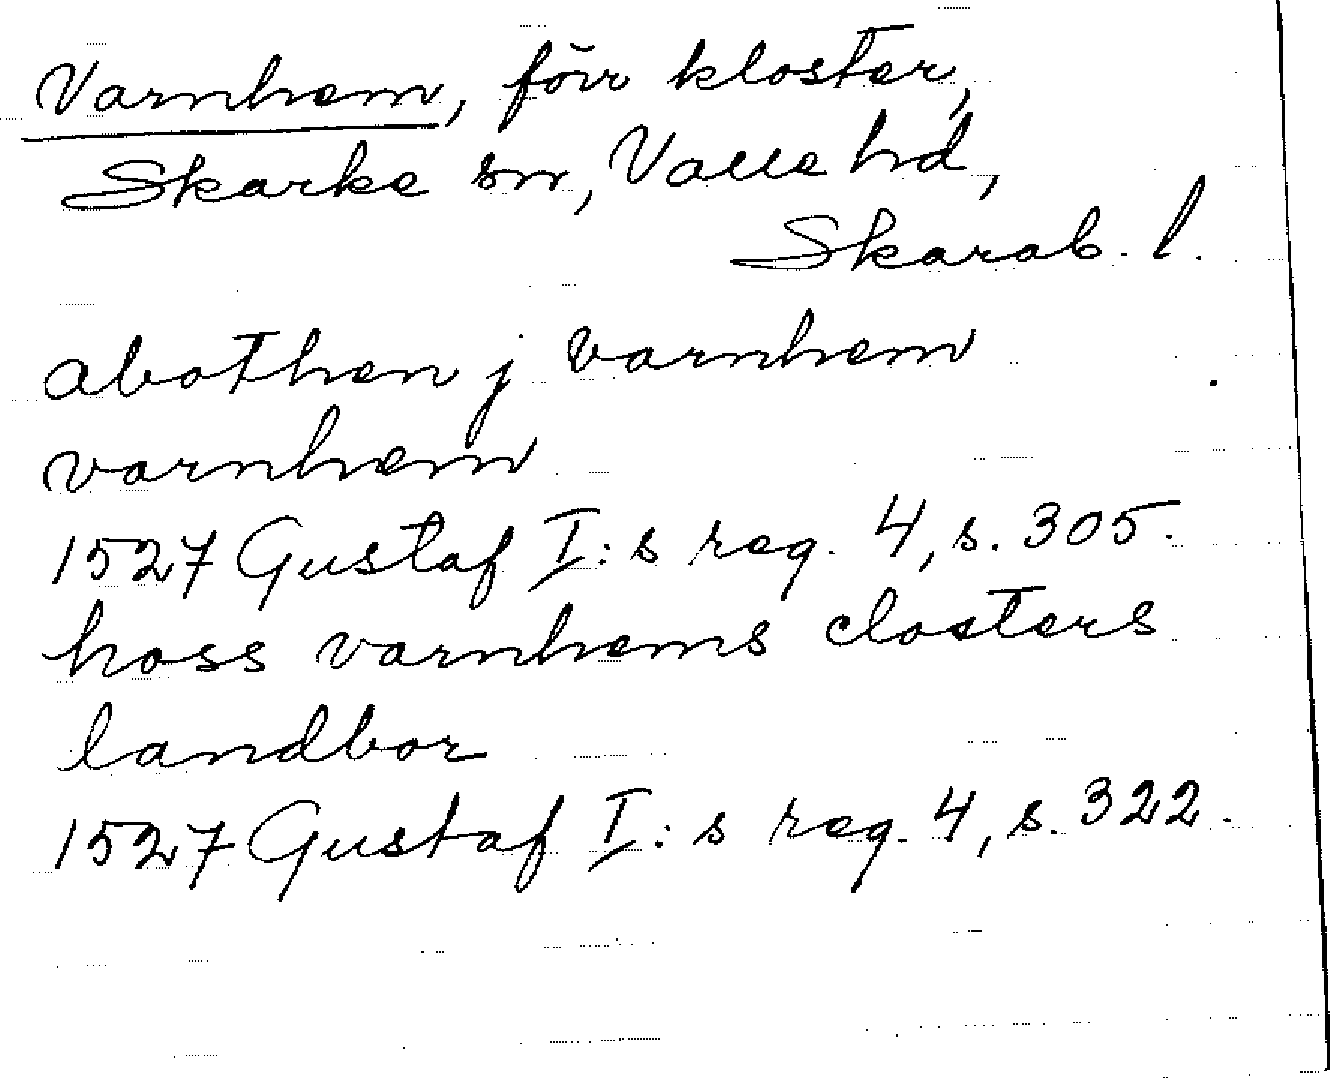 Varnhem, förr kloster,
Skarke sn, Valle hd,
Skarab. l.
abothen j varnhem
varnhem
1527 Gustaf I:s reg. 4, s. 305.
hoss varnhems closters
landbor
1527 Gustaf I:s reg. 4, s. 322.